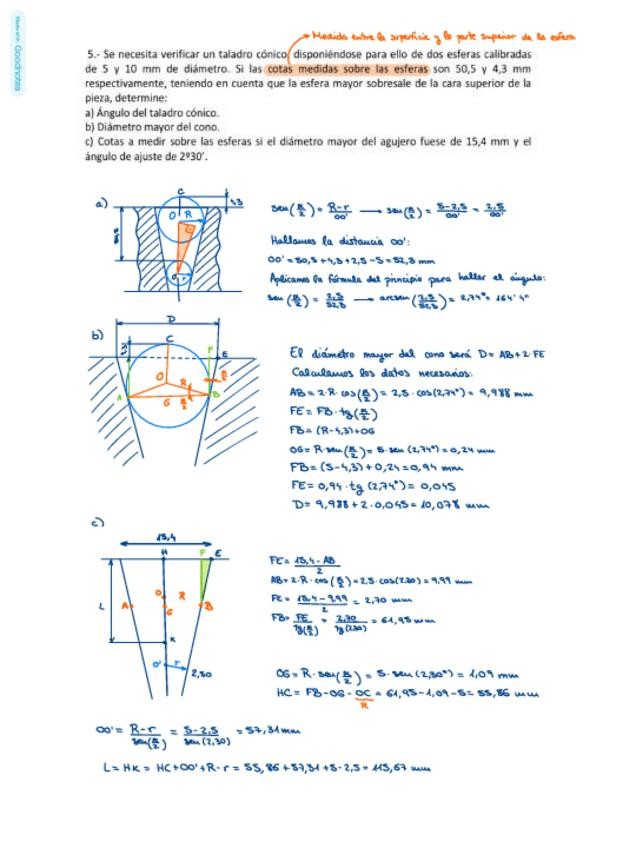 Made with Goodnotes
Medida entre la superficie y la parte superior de la esfera
5.- Se necesita verificar un taladro cónico, disponiéndose para ello de dos esferas calibradas
de 5 y 10 mm de diámetro. Si las cotas medidas sobre las esferas son 50,5 y 4,3 mm
respectivamente, teniendo en cuenta que la esfera mayor sobresale de la cara superior de la
pieza, determine:
a) Ángulo del taladro cónico.
b) Diámetro mayor del cono.
c) Cotas a medir sobre las esferas si el diámetro mayor del agujero fuese de 15,4 mm y el
ángulo de ajuste de 2º30´.
a)
C
4,3
O R
50,5
O' r
sen(α/2) = R-r/OO' → sen(α/2) = 5-2,5/OO' = 2,5/OO'
Hallamos la distancia OO':
OO' = 50,5 + 4,3 + 2,5 - 5 = 52,3 mm
Aplicamos la fórmula del principio para hallar el ángulo:
sen(α/2) = 2,5/52,3 → arcsen(2,5/52,3) = 2,74° = 164' 4"
b)
D
C
4,3
F E
O R α/2
A G α/2 B
El diámetro mayor del cono será D = AB + 2·FE
Calculamos los datos necesarios:
AB = 2·R·cos(α/2) = 2,5·cos(2,74°) = 9,988 mm
FE = FB·tg(α/2)
FB = (R-4,3) + OG
OG = R·sen(α/2) = 5·sen(2,74°) = 0,24 mm
FB = (5-4,3) + 0,24 = 0,94 mm
FE = 0,94·tg(2,74°) = 0,045
D = 9,988 + 2·0,045 = 10,078 mm
c)
15,4
H F E
L A O R G B
K
O' r 2,30
FE = 15,4 - AB/2
AB = 2·R·cos(α/2) = 2·5·cos(2,30) = 9,99 mm
FE = 15,4 - 9,99/2 = 2,70 mm
FB = FE/tg(α/2) = 2,70/tg(2,30) = 61,95 mm
OG = R·sen(α/2) = 5·sen(2,30°) = 1,09 mm
HC = FB - OG - OC/R = 61,95 - 1,09 - 5 = 55,86 mm
OO' = R-r/sen(α/2) = 5-2,5/sen(2,30) = 57,31 mm
L = HK = HC + OO' + R - r = 55,86 + 57,31 + 5 - 2,5 = 115,67 mm